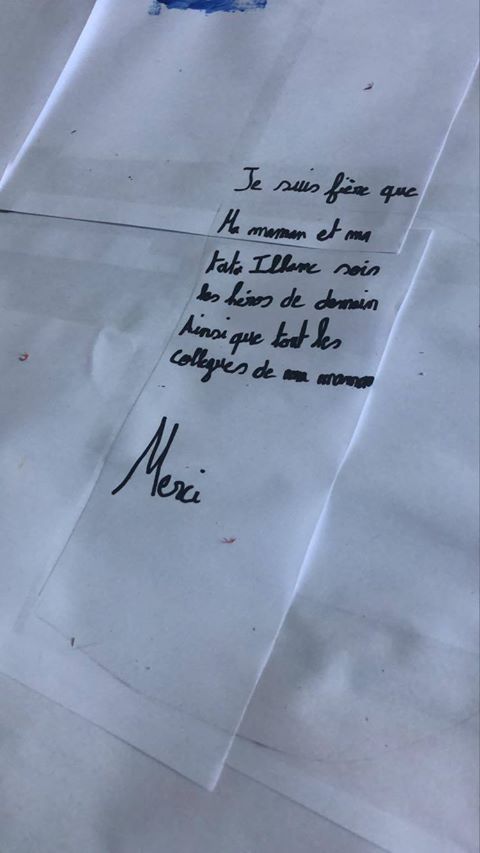 Je suis fière que
Ma maman et ma
tata Illanc sois
les héros de demain
Ainsi que tout les
collegues de ma maman
Merci